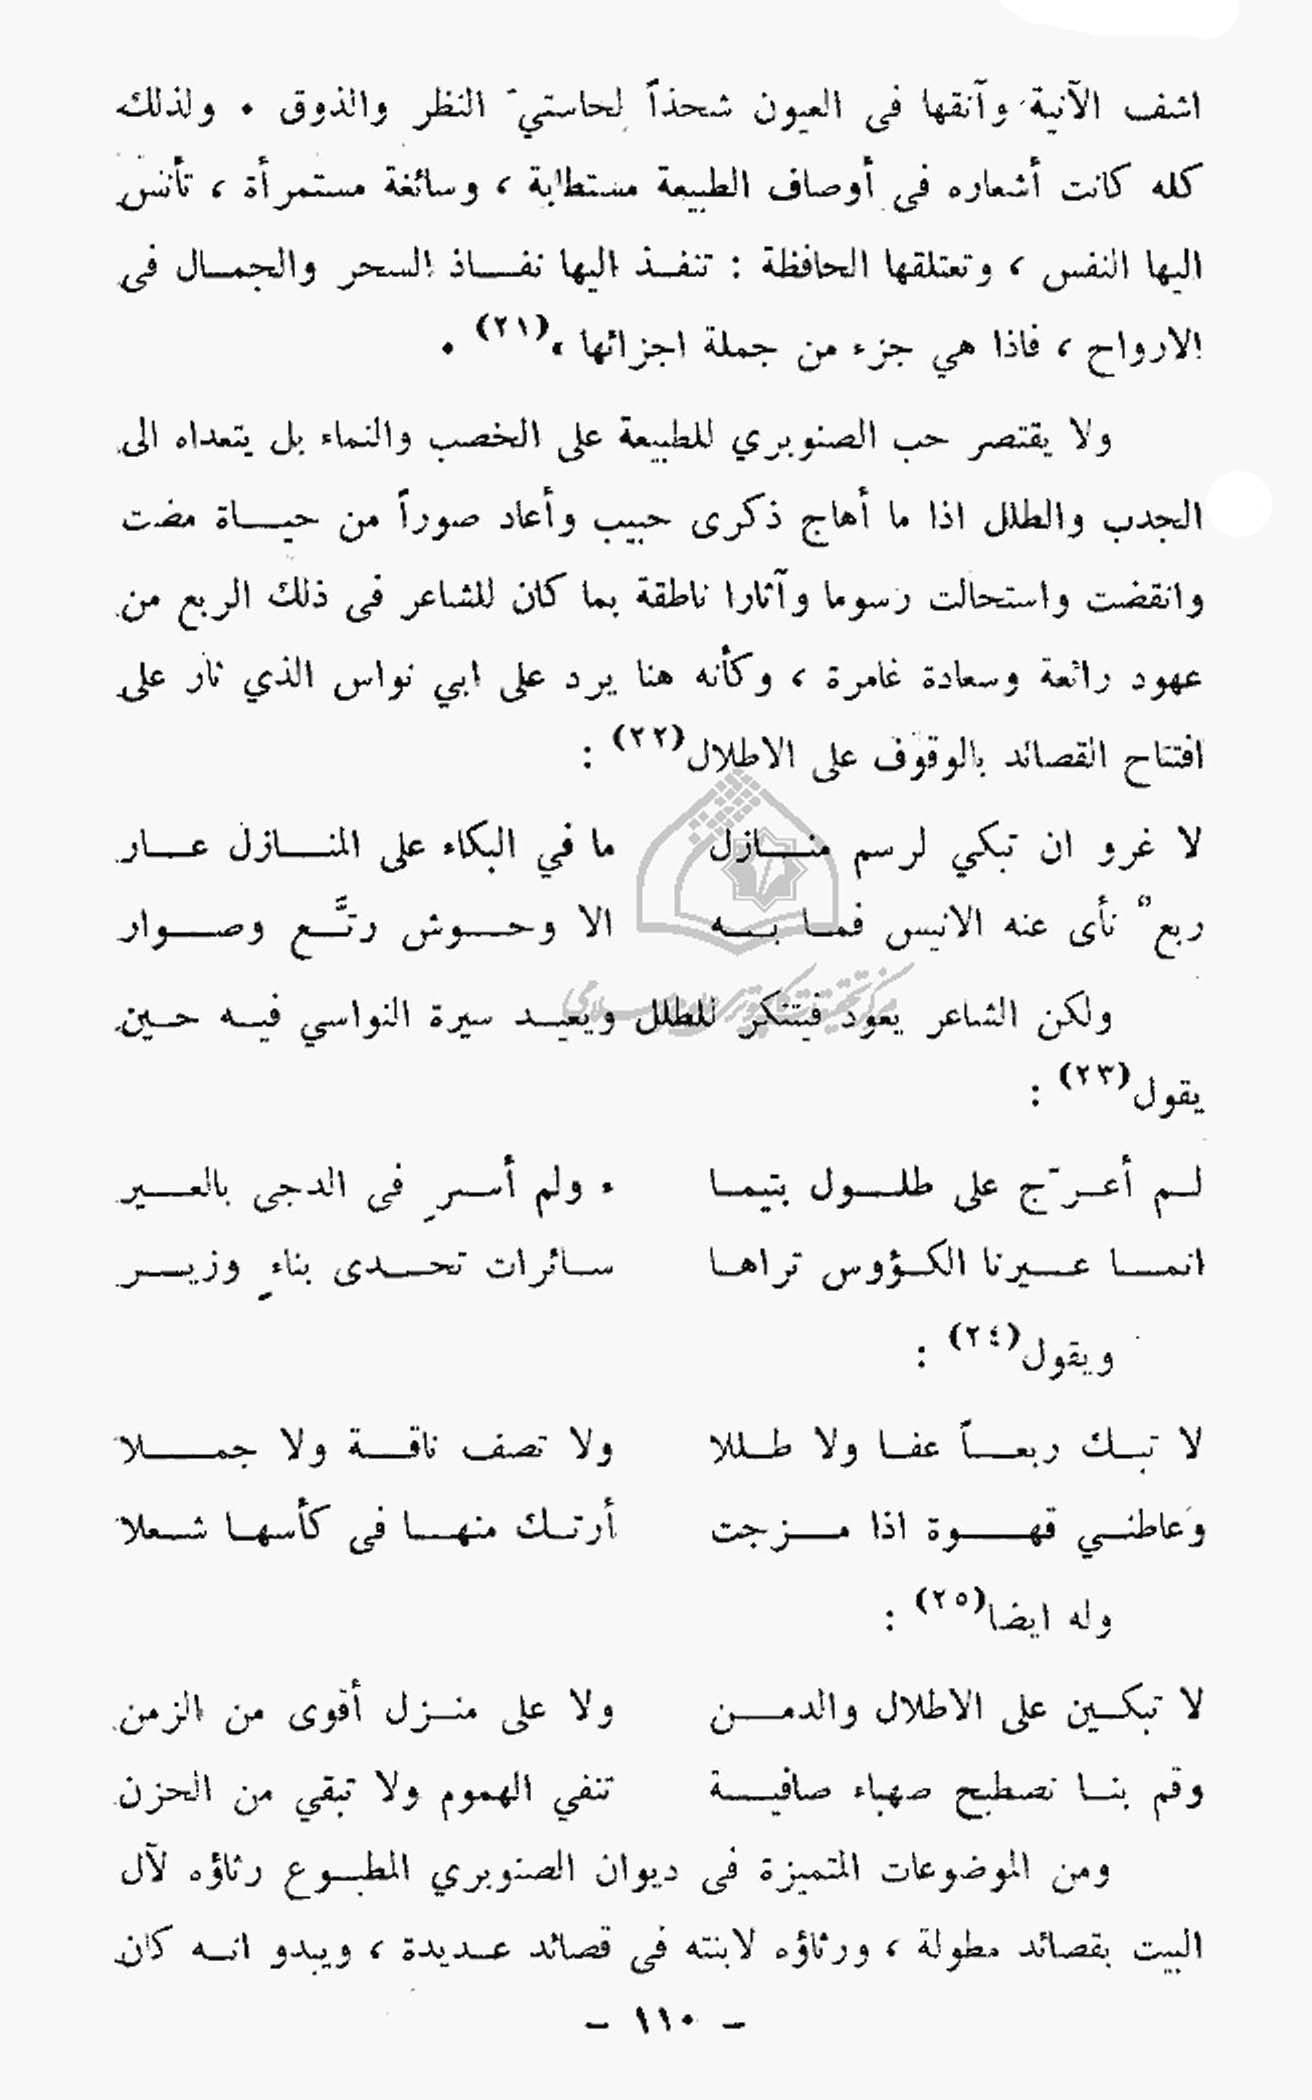 اشف الآنية وآنقها فى العيون شحذاً لحاستيّ النظر والذوق ٠ ولذلك
كله كانت أشعاره فى أوصاف الطبيعة مستطابة ، وسائغة مستمرأة ، تأنس
اليها النفس ، وتعتلقها الحافظة : تنفـذ اليها نفـاذ السحر والجمـال فى
الارواح ، فاذا هي جزء من جملة اجزائها »(٢١) ٠
ولا يقتصر حب الصنوبري للطبيعة على الخصب والنماء بل يتعداه الى
الجدب والطلل اذا ما أهاج ذكرى حبيب وأعاد صوراً من حيـاة مضت
وانقضت واستحالت رسوما وآثارا ناطقة بما كان للشاعر فى ذلك الربع من
عهود رائعة وسعادة غامرة ، وكأنه هنا يرد على ابي نواس الذي ثار على
افتتاح القصائد بالوقوف على الاطلال(٢٢) :
لا غرو ان تبكي لرسم منـازل ما في البكاء على المنـازل عـار
ربعٌ نأى عنه الانيس فمـا بـه الا وحـوش رتَّـع وصـوار
ولكن الشاعر يعود فيتنكر للطلل ويعيـد سيرة النواسي فيـه حـين
يقول(٢٣) :
لـم أعـرّج على طلـول بتيمـا ء ولم أسـرِ فى الدجى بالعـير
انمـا عـيرنا الكـؤوس تراهـا سـائرات تحـدى بناءٍ وزيـر
ويقول(٢٤) :
لا تبـك ربعـاً عفـا ولا طـللا ولا تصف ناقـة ولا جمـلا
وعاطنـي قهـوة اذا مـزجت أرتـك منهـا فى كأسهـا شـعلا
وله ايضا(٢٥) :
لا تبكـين على الاطلال والدمـن ولا على منـزل أقوى من الزمن
وقم بنـا نصطبح صهباء صافيـة تنفي الهموم ولا تبقي من الحزن
ومن الموضوعات المتميزة فى ديوان الصنوبري المطبـوع رثاؤه لآل
البيت بقصائد مطولة ، ورثاؤه لابنته فى قصائد عـديدة ، ويبدو انـه كان
– ١١٠ –